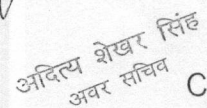 अदित्य शेखर सिंह
अवर सचिव
C